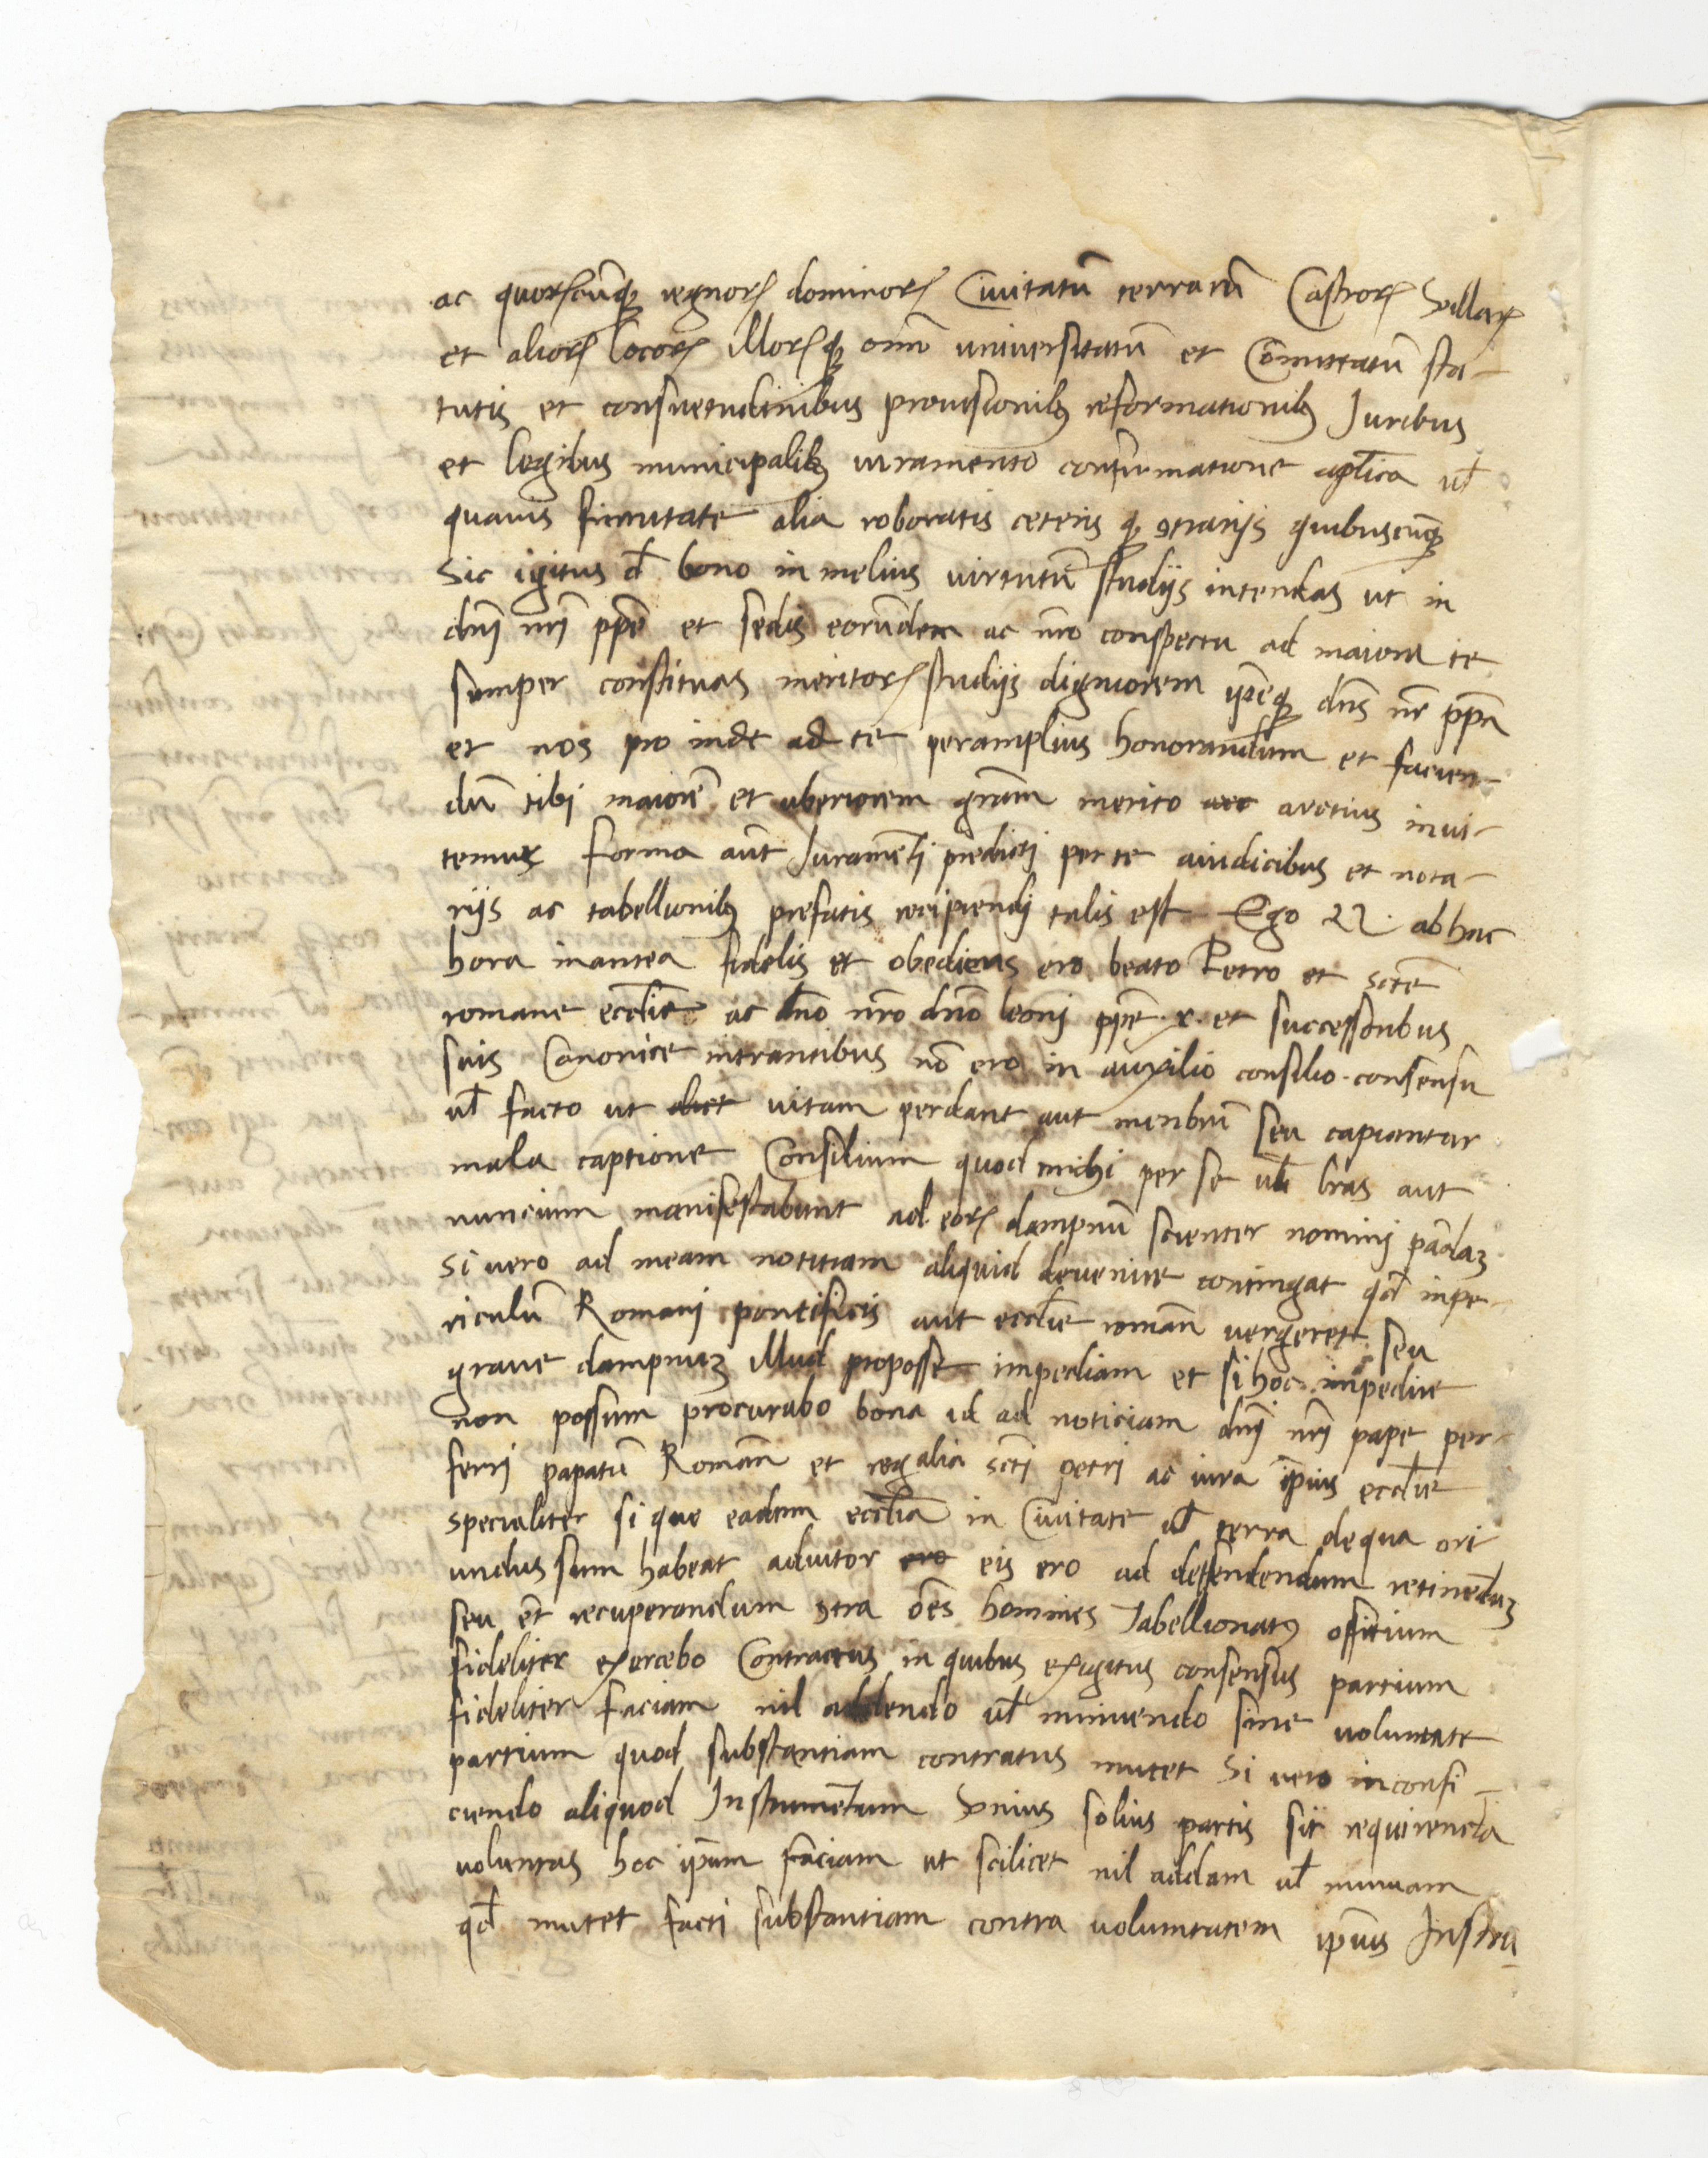 ac quorꝝcūqꝫ regnorꝝ dominorꝝ Civitatū terrarū Castrorꝝ Villarꝝ
et aliorꝝ locorꝝ illorꝝqꝫ oīm universitatū et Cōmitatū sta-
tutis et consuetudinibus provisionibꝫ reformationibꝫ Juribus
et legibus municipalibꝫ iuramento confirmatione aplīca ul̄
quavis firmitate alia roboratis ceteris qꝫ ꝯtrarijs quibuscūqꝫ
Sic igitur d̄ bono in melius virtutū studijs intendas ut in
dnī nrī ppē et sedis eorundem ac nrō conspectu ad maiora te
semper constituas meritorꝝ studijs digniorem ipēqꝫ dn̄s nr̄ ppā
et nos pro inde ad te peramplius honorandum et facien-
dū tibi maiorē et uberiorem grām merito arctius invi-
temur Forma aūt Juramēti predicti per te a iudicibus et nota-
rijs ac tabellionibꝫ prefatis recipiendj talis est Ego N. ab hac
hora inantea fidelis et obediens ero beato Petro et scte
romane eccl̄ie ac dno nrō dnō leonj ppē .x. et successoribus
suis Canonice intrantibus nō ero in auxilio consilio. consensu
ul̄ facto ut vitam perdant aut menbrū seu capiantur
mala captione Consilium quod michi per se ul̄ lrās aut
nuncium manifestabunt ad eorꝝ dampnū scienter neminj pādaꝫ
Si vero ad meam notitiam aliquid devenire contingat qd̄ inpe-
riculū Romani pontificis aut eccl̄ie romanē vergeret seu
grave dampnuꝫ illud proposse impediam et si hoc inpedire
non possum procurabo bona id ad noticiam dnī nrī pape per-
ferri papatū Romanū et regalia sctī petri ac iura ip̄ius eccl̄ie
specialiter si que eadem eccl̄ia in Civitate ul̄ terra de qua ori
undus sum habeat adiutor ero eis ero ad deffendendum retinēduꝫ
seu et recuperandum ꝯtra oēs homines Tabellionatꝰ offitium
fideliter exercebo Contractus in quibus exigitus consensus partium
fideliter faciam nil addendo ul̄ minuendo sine voluntate
partium quod substantiam contratus mutet Si vero inconfi-
ciendo aliquod Instrumētum Unius solius partis sit requirenda
voluntas hoc ipsum faciam ut scilicet nil addam ul̄ minuam
qd̄ mutet facti substantiam contra voluntatem ip̄ius Instru-